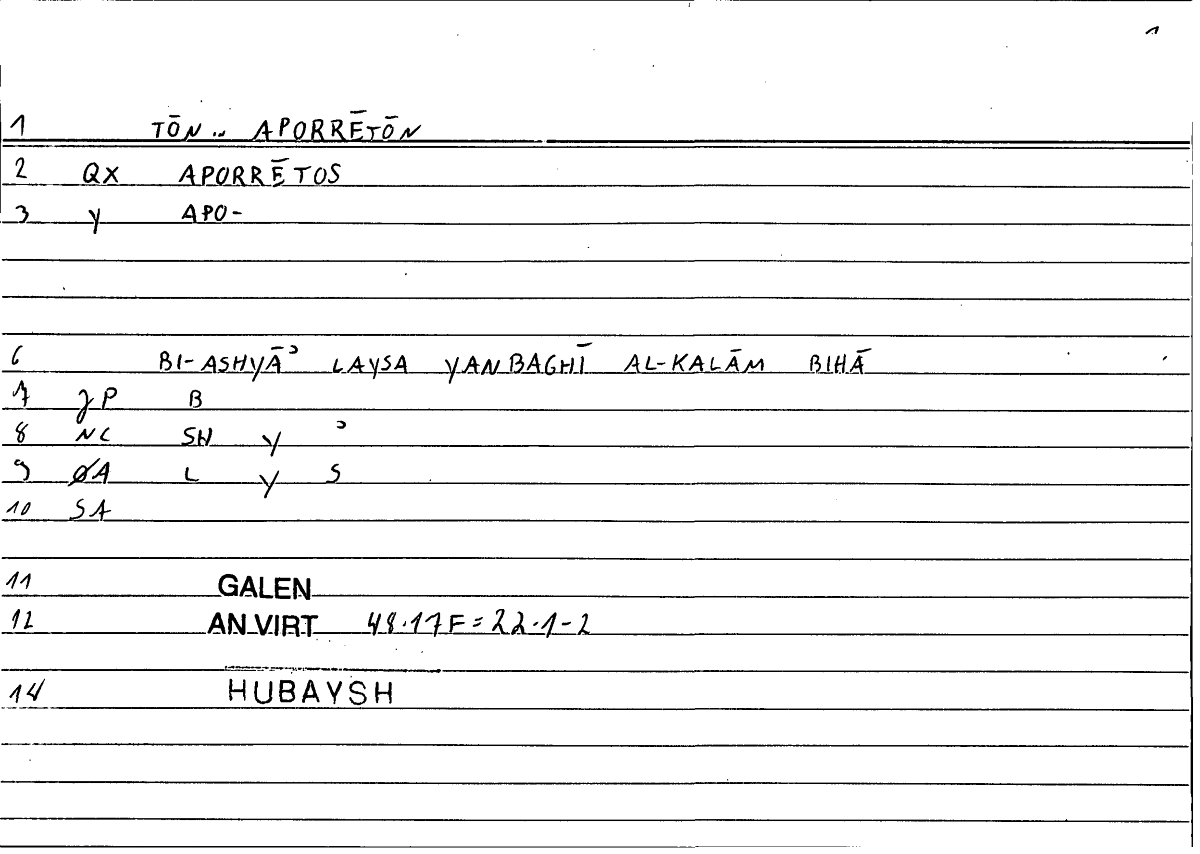 1
1 TŌN .. APORRĒTŌN
2 QX APORRĒTOS
3 Y APO-
6 BI-ASHYĀʾ LAYSA YANBAGHĪ AL-KALĀM BIHĀ
7 JP B
8 NC SH Y ʾ
9 ØA L Y S
10 SA
11 GALEN
12 AN VIRT 48.17F = 22.1-2
14 HUBAYSH